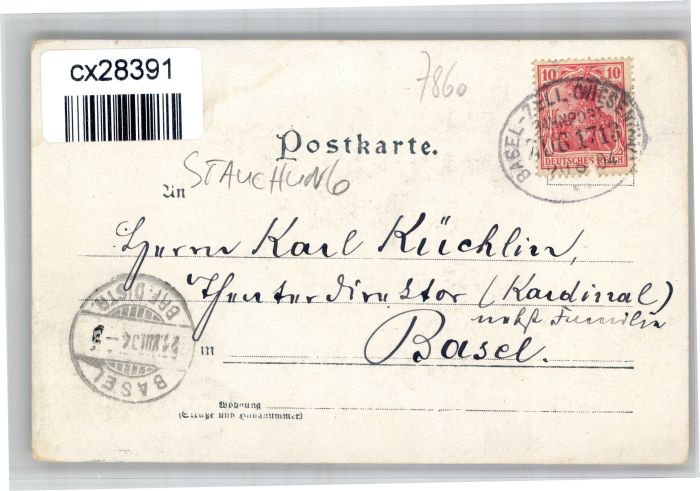 cx28391
7860
10 10
DEUTSCHES REICH
BASEL-ZELL (WIESENTHAL)
BAHNPOST
ZUG 1713
20 8 04
Postkarte.
An STAUCHUNG
Herrn Karl Küchlin,
Theaterdirektor (Kardinal)
nebst Familie
in Basel.
BRF. DISTR.
21.VIII.04
BASEL
Wohnung
(Straße und Hausnummer)